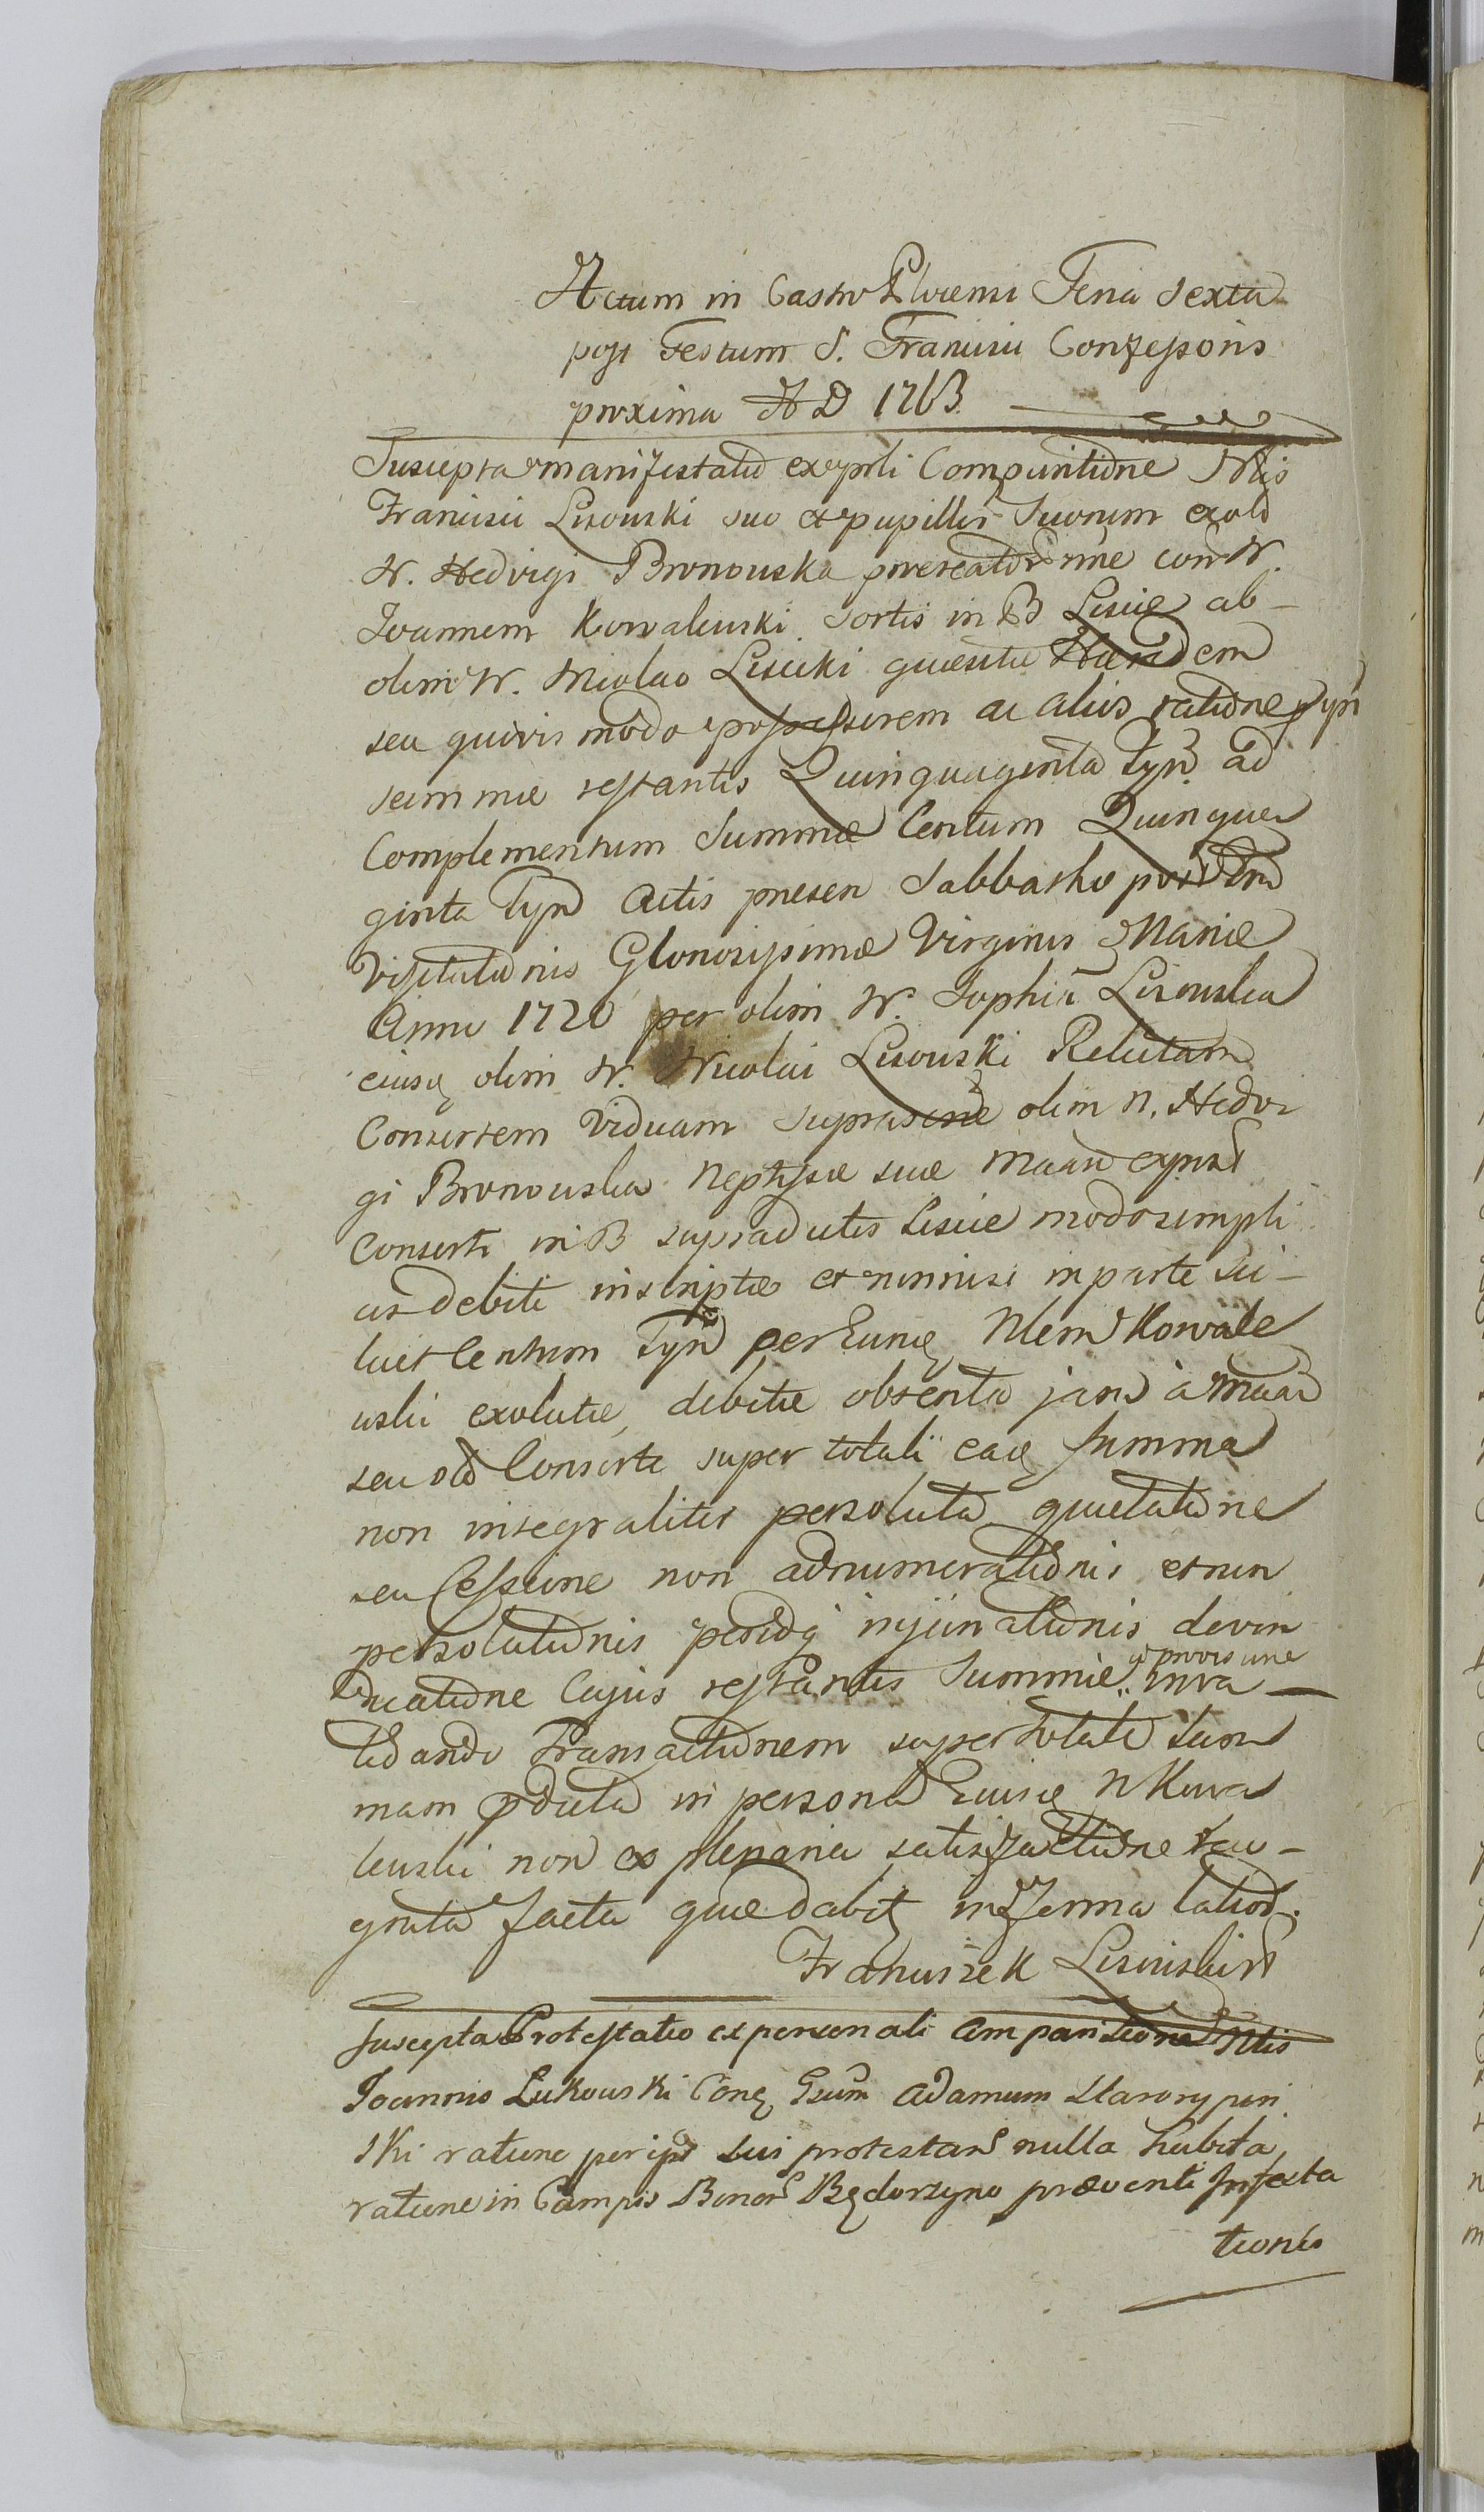 Actum in Castro Plocensi Feria Sexta
post Festum S. Francisci Confessoris
proxima A D 1763
Suscepta manifestatio ex prli Comparitione Nlis
Francisci Lisowski suo et pupillor Suorum ex olim
N. Hedvigi Bronowska procreator nne con N.
Joannem Kowalewski Sortis in B Lisice ab-
olim N. Nicolao Lisicki quesitæ Hæredem
seu quivis modo possessorem ac alios ratione
summæ restantis Quinquaginta Tynf ad
Complementum Summæ Centum Quinqua
ginta Tynf Actis presen Sabbatho
Visitationis Gloriosissimæ Virginis Mariæ
Anno 1720 per olim N. Sophia Lisowska
eiusq olim N. Nicolai Lisowski Relictam
Consortem Viduam suprascrie olim N. Hedvi
gi Bronowska Neptisæ suæ
Consorti in B supradictis Lisice modo simpli
cis debiti inscriptæ et nonnisi in parte sci-
licet Centum Tynf per Eunq Nlem Kowale
wski exolutæ, debitæ obtenta jam à
seu Consorte super totali eaq summa
non integraliter persoluta quietatione
seu Cessione non adnumerationis et non
persolutionis injuriationis devin
dicatione Cujus restantis Summæ g provisione inva-
lidando Transactionem super totali sum
mam pdicta in persona Eiusq N Kowa
lewski non ex plenaria satisfactione
facta quæ dabit in Forma latiori.
Franciszek Lisowski
Suscepta Protestatio ex personali Comparitione Nlis
Joannis Lukowski Conq Gsum Adamum Starorypin
ski ratione per ips sui protestan nulla habita
ratione in Campis Bonor Będorzyno præventi Infesta
tionis